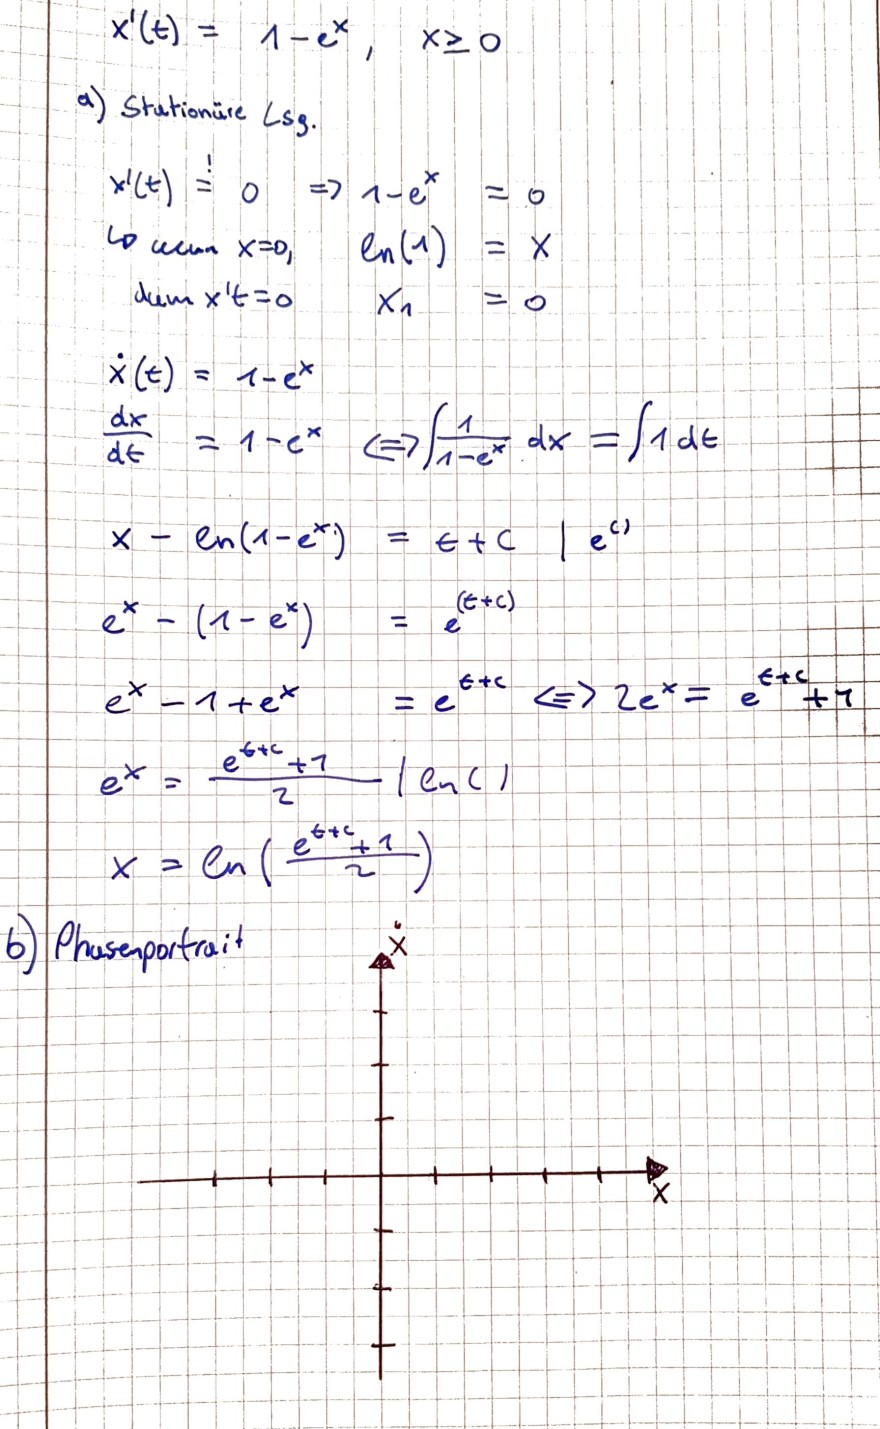 x'(t) = 1-eˣ, x≥0
a) Stationäre Lsg.
x'(t) =! 0 => 1-eˣ = 0
↳ wenn x=0, ln(1) = x
dann x't=0 x₁ = 0
ẋ(t) = 1-eˣ
dx/dt = 1-eˣ <=> ∫ 1/(1-eˣ) dx = ∫ 1 dt
x - ln(1-eˣ) = t+c | e^()
eˣ - (1-eˣ) = e^(t+c)
eˣ - 1 + eˣ = e^(t+c) <=> 2eˣ = e^(t+c) + 1
eˣ = (e^(t+c) + 1)/2 | ln( )
x = ln((e^(t+c) + 1)/2)
b) Phasenportrait
ẋ
x